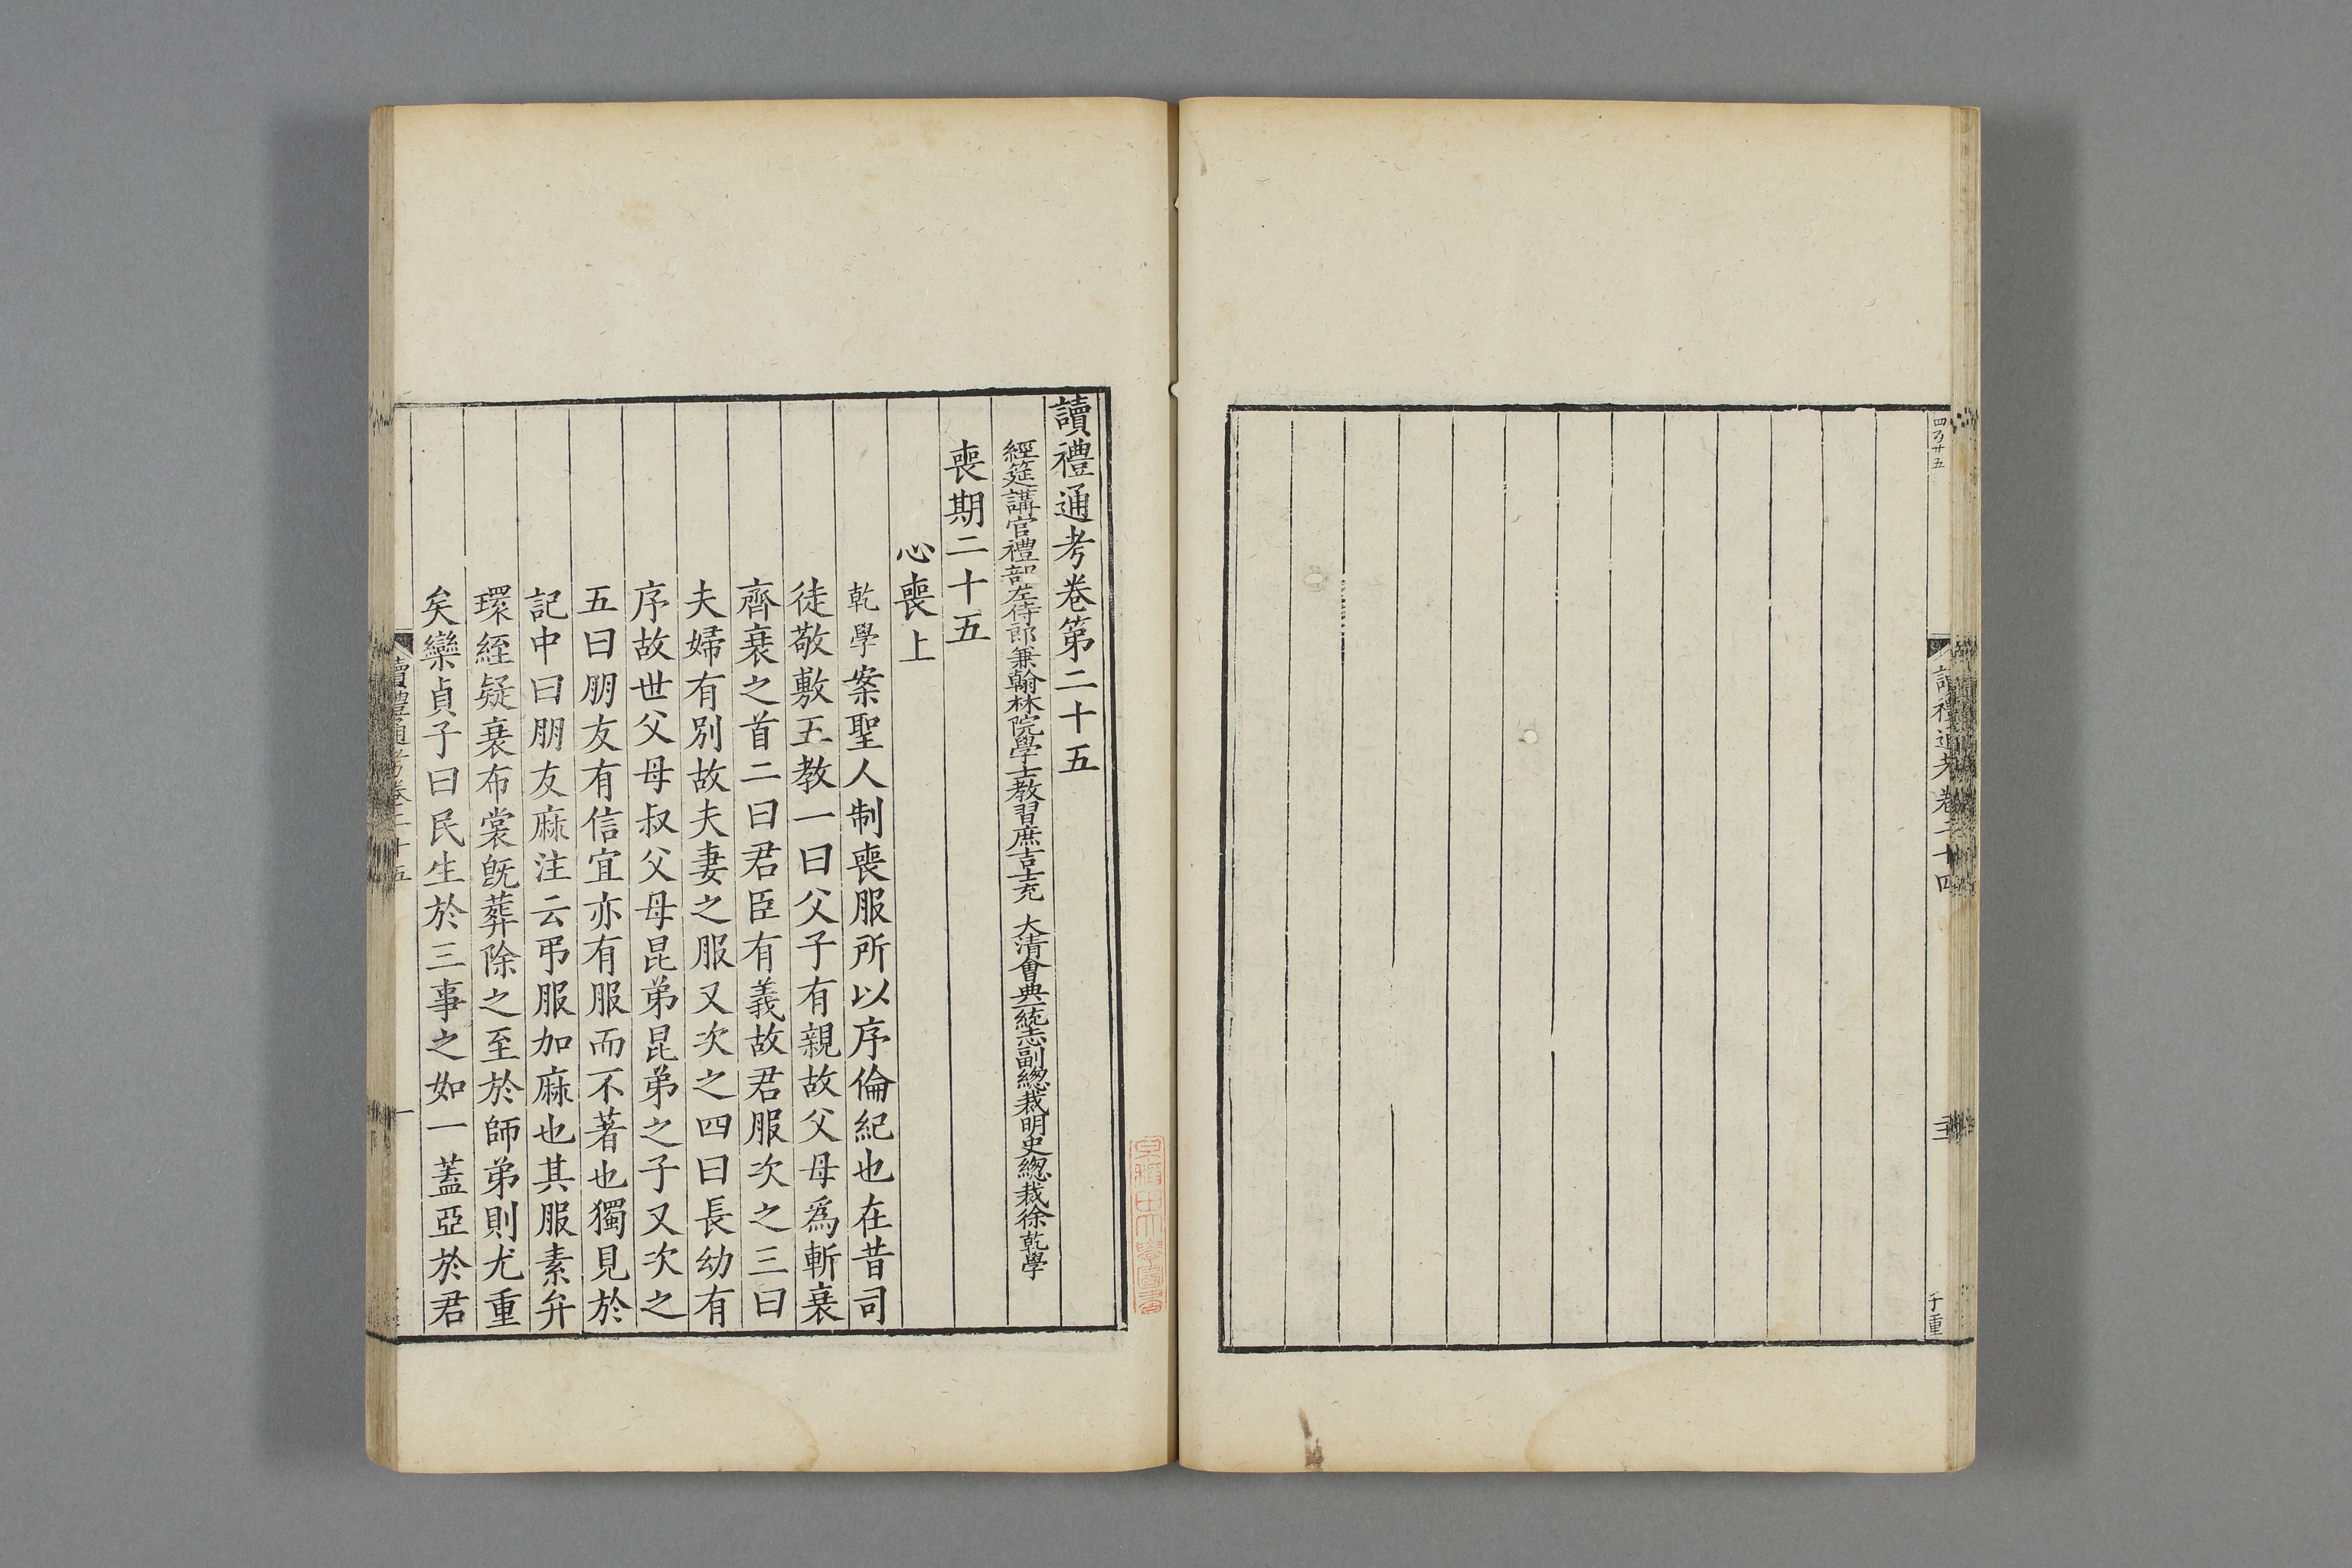 四百廿五
讀禮通考卷二十四
三
子重
讀禮通考卷第二十五
經筵講官禮部左侍郎兼翰林院學士教習庶吉士充 大清會典一統志副總裁明史總裁徐乾學
喪期二十五
心喪上
乾學案聖人制喪服所以序倫紀也在昔司
徒敬敷五教一曰父子有親故父母爲斬衰
齊衰之首二曰君臣有義故君服次之三曰
夫婦有別故夫妻之服又次之四曰長幼有
序故世父母叔父母昆弟昆弟之子又次之
五曰朋友有信宜亦有服而不著也獨見於
記中曰朋友麻注云弔服加麻也其服素弁
環絰疑衰布裳旣葬除之至於師弟則尤重
矣欒貞子曰民生於三事之如一蓋亞於君
讀禮通考卷二十五
一